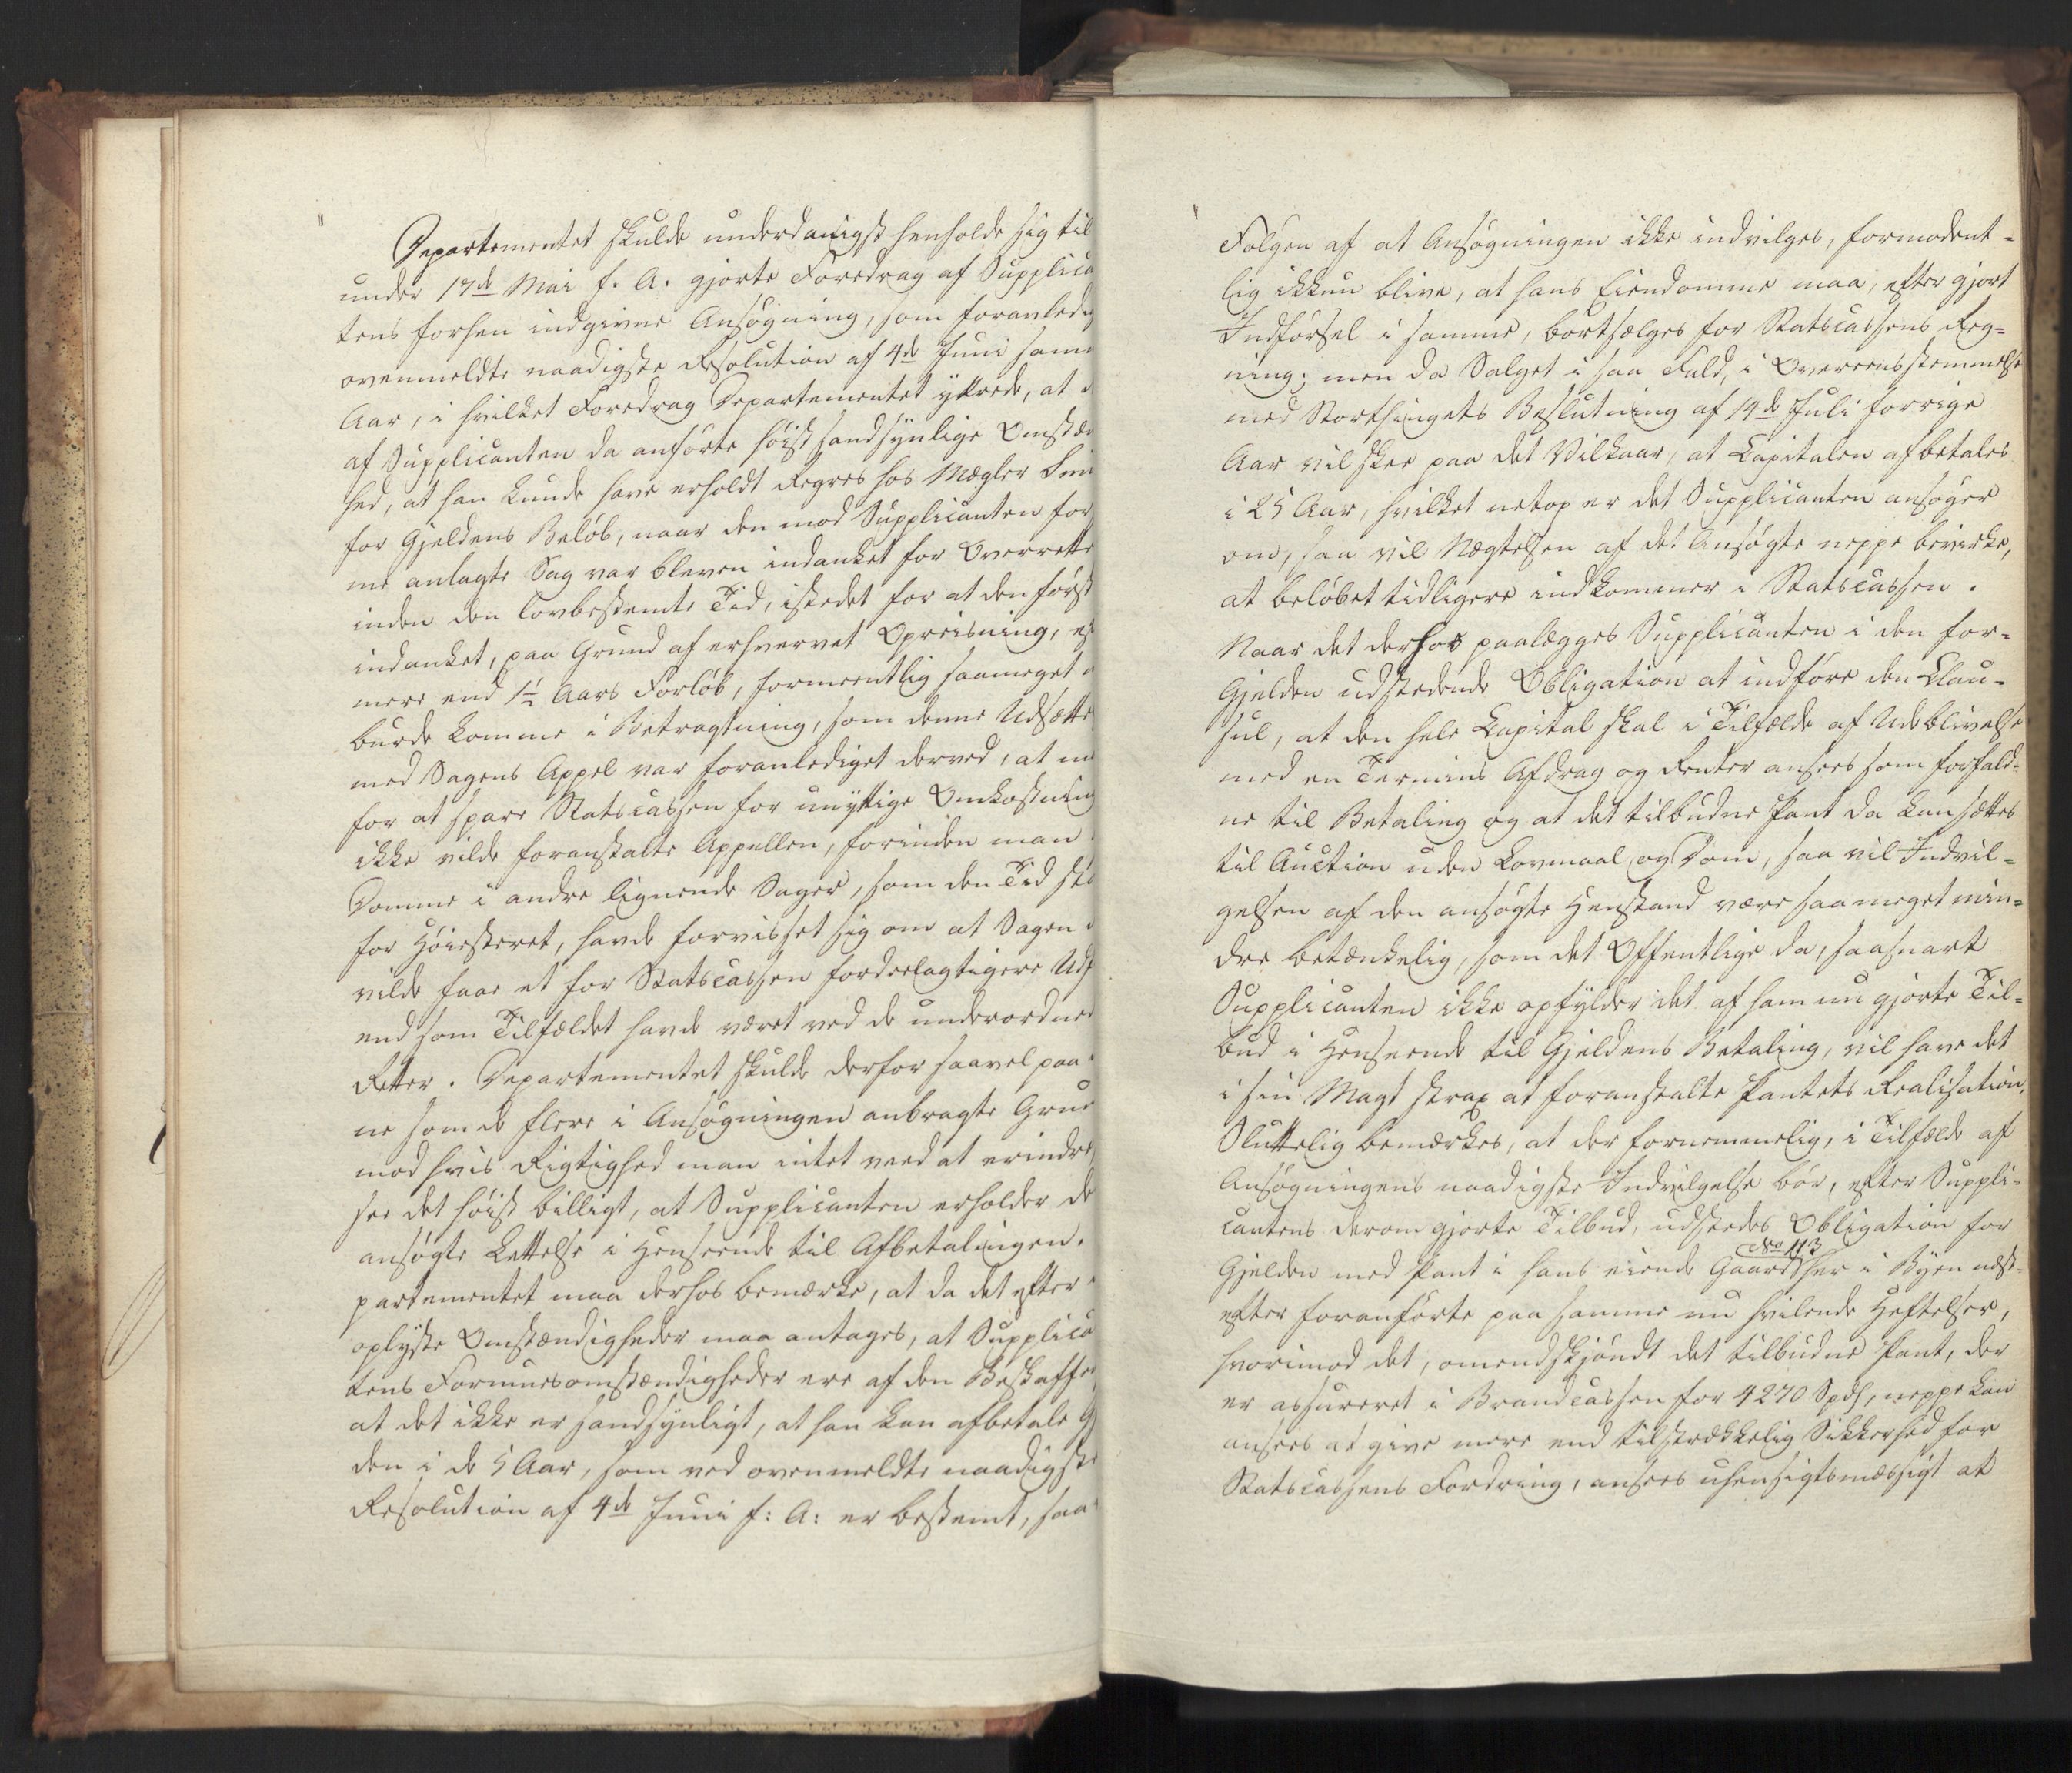 "
Departementet skulde underdanigst henholde sig til
under 17de Mai f. A. gjorte Foredrag af Supplica
tens forhen indgivne Ansøgning, som foranledig
ovenmeldte naadigste Resolution af 4de Juni samme
Aar, i hvilket Foredrag Departementet yttrede, at d
af Supplicanten da anførte høist sandsynlige Omstæn
hed, at han kunde have erholdt Regres hos Mægler
for Gjeldens Beløb, naar den mod Supplicanten for
me anlagte Sag var bleven indanket for Overrette
inden den lovbestemte Tid, istedet for at den først
indanket, paa Grund af erhvervet Opreisning, ef
mere end 1½ Aars Forløb, formeentlig saameget
burde komme i Betragtning, som denne Udsætte
med Sagens Appel var foranlediget derved, at m
for at spare Statscassen for unyttige Omkostning
ikke vilde foranstalte Appellen, forinden man
Domme i andre lignende Sager, som den Tid sto
for Høiesteret, havde forvisset sig om at Sagen
vilde faae et for Statscassen fordeelagtigere Udf
end som Tilfældet havde været ved de underordned
Retter. Departementet skulde derfor saavel paa
ne som de flere i Ansøgningen anbragte Grun
mod hvis Rigtighed man intet veed at erindre,
see det høist billigt, at Supplicanten erholder de
ansøgte Lettelse i Henseende til Afbetalingen.
partementet maa derhos bemærke, at da det efter
oplyste Omstændigheder maa antages, at Supplica
tens Formuesomstændigheder ere af den Beskaffen
at det ikke er sandsynligt, at han kan afbetale Gj
den i de 5 Aar, som ved ovenmeldte naadigste
Resolution af 4de Juni f: A: er bestemt, saa
Følgen af at Ansøgningen ikke indvilges, formodent-
lig ikkun blive, at hans Eiendomme maa, efter gjort
Indførsel i samme, bortsælges for Statscassens Reg-
ning; men da Salget i saa Fald, i Overeensstemmelse
med Storthingets Beslutning af 14de Juli forrige
Aar vil skee paa det Vilkaar, at Capitalen afbetales
i 25 Aar, hvilket netop er det Supplicanten ansøger
om, saa vil Nægtelsen af det Ansøgte neppe bevirke,
at beløbet tidligere indkommer i Statscassen.
Naar det derhos paalægges Supplicanten i den for
Gjelden udstedende Obligation at indføre den Clau-
sul, at den hele Capital skal i Tilfælde af Udeblivelse
med en Termins Afdrag og Renter ansees som forfald-
ne til Betaling og at det tilbudne Pant da kan sættes
til Auction uden Lovmaal og Dom, saa vil Indvil-
gelsen af den ansøgte Henstand være saa meget min-
dre betænkelig, som det Offentlige da, saasnart
Supplicanten ikke opfylder det af ham nu gjorte Til-
bud i Henseende til Gjeldens Betaling, vil have det
i sin Magt strax at foranstalte Pantets Realisation.
Sluttelig bemærkes, at der fornemmelig, i Tilfælde af
Ansøgningens naadigste Indvilgelse bør, efter Suppli-
cantens derom gjorte Tilbud, udstedes Obligation for
No 113
Gjelden med Pant i hans eiende Gaard her i Byen næst-
efter foranførte paa samme nu hvilende Heftelser,
hvorimod det, omendskjøndt det tilbudne Pant, der
er assureret i Brandcassen for 4270 Spd, neppe kan
ansees at give mere end tilstrækkelig Sikkerhed for
Statscassens Fordring, ansees uhensigtsmæssigt at